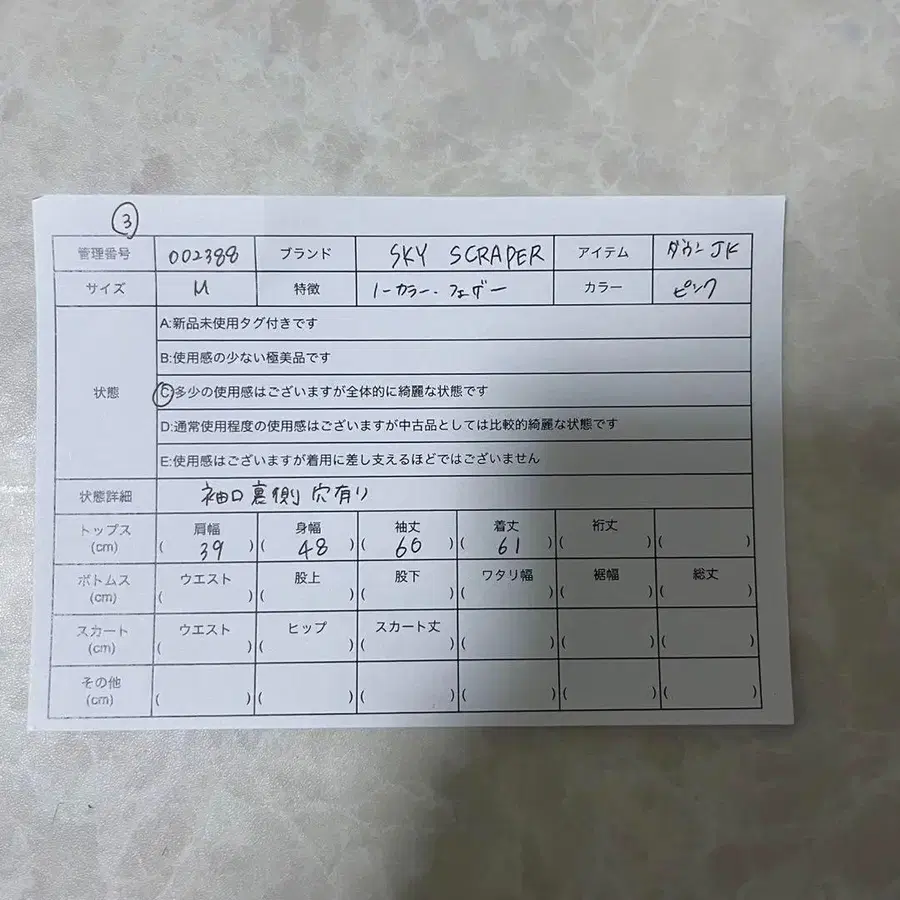 ③
管理番号 002388 ブランド SKY SCRAPER アイテム ダウンJK
サイズ M 特徴 ノーカラー・フェザー カラー ピンク
状態
A:新品未使用タグ付きです
B:使用感の少ない極美品です
C:多少の使用感はございますが全体的に綺麗な状態です
D:通常使用程度の使用感はございますが中古品としては比較的綺麗な状態です
E:使用感はございますが着用に差し支えるほどではございません
状態詳細 袖口裏側穴有り
トップス 肩幅 身幅 袖丈 着丈 裄丈
(cm) ( 39 ) ( 48 ) ( 60 ) ( 61 ) ( ) ( )
ボトムス ウエスト 股上 股下 ワタリ幅 裾幅 総丈
(cm) ( ) ( ) ( ) ( ) ( ) ( )
スカート ウエスト ヒップ スカート丈
(cm) ( ) ( ) ( ) ( ) ( ) ( )
その他
(cm) ( ) ( ) ( ) ( ) ( ) ( )